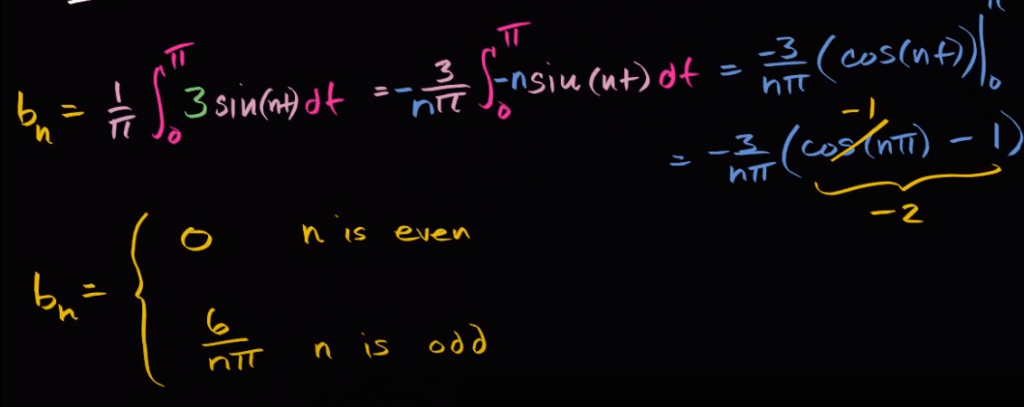 bₙ = 1/π ∫₀^π 3 sin(nt) dt = -3/(nπ) ∫₀^π -n sin(nt) dt = -3/(nπ) (cos(nt))|₀^π
-1
= -3/(nπ) (cos(nπ) - 1)
-2
bₙ = { 0 n is even
6/(nπ) n is odd